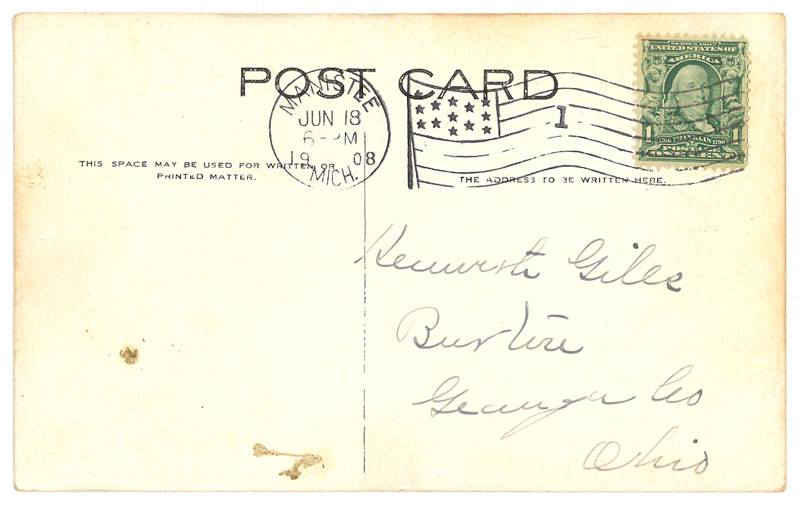 POST CARD
MANISTEE
JUN 18
6-PM
1908
MICH.
1
SERIES 1902
UNITED STATES OF
AMERICA
1
1706 FRANKLIN 1790
1
POSTAGE
ONE CENT
THIS SPACE MAY BE USED FOR WRITTEN OR
PRINTED MATTER.
THE ADDRESS TO BE WRITTEN HERE.
Giles
Burton
Geauga Co
Ohio